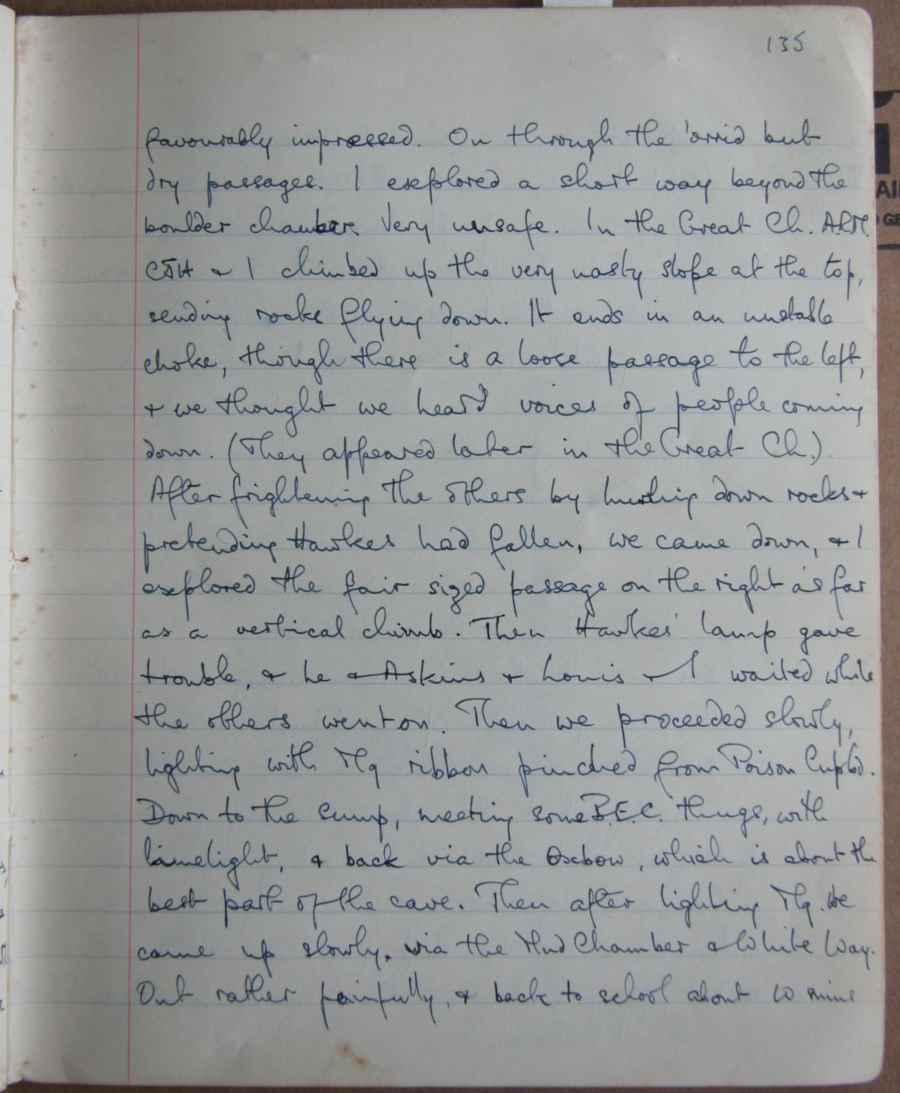 135
favourably impressed. On through the 'orrid but
dry passages. I explored a short way beyond the
boulder chamber. Very unsafe. In the Great Ch.
CJH & I climbed up the very nasty slope at the top,
sending rocks flying down. It ends in an unstable
choke, though there is a loose passage to the left,
& we thought we heard voices of people coming
down. (They appeared later in the Great Ch.)
After frightening the others by hurling down rocks &
pretending Hawkes had fallen, we came down, & I
explored the fair sized passage on the right as far
as a vertical climb. Then Hawkes' lamp gave
trouble, & he & Askins & Louis & I waited while
the others went on. Then we proceeded slowly,
lighting with Mg ribbon pinched from Poison Cupbd.
Down to the sump, meeting some B.E.C. things, with
limelight, & back via the Oxbow, which is about the
best part of the cave. Then after lighting Mg. we
came up slowly, via the Mud Chamber & White Way.
Out rather painfully, & back to school about 10 mins